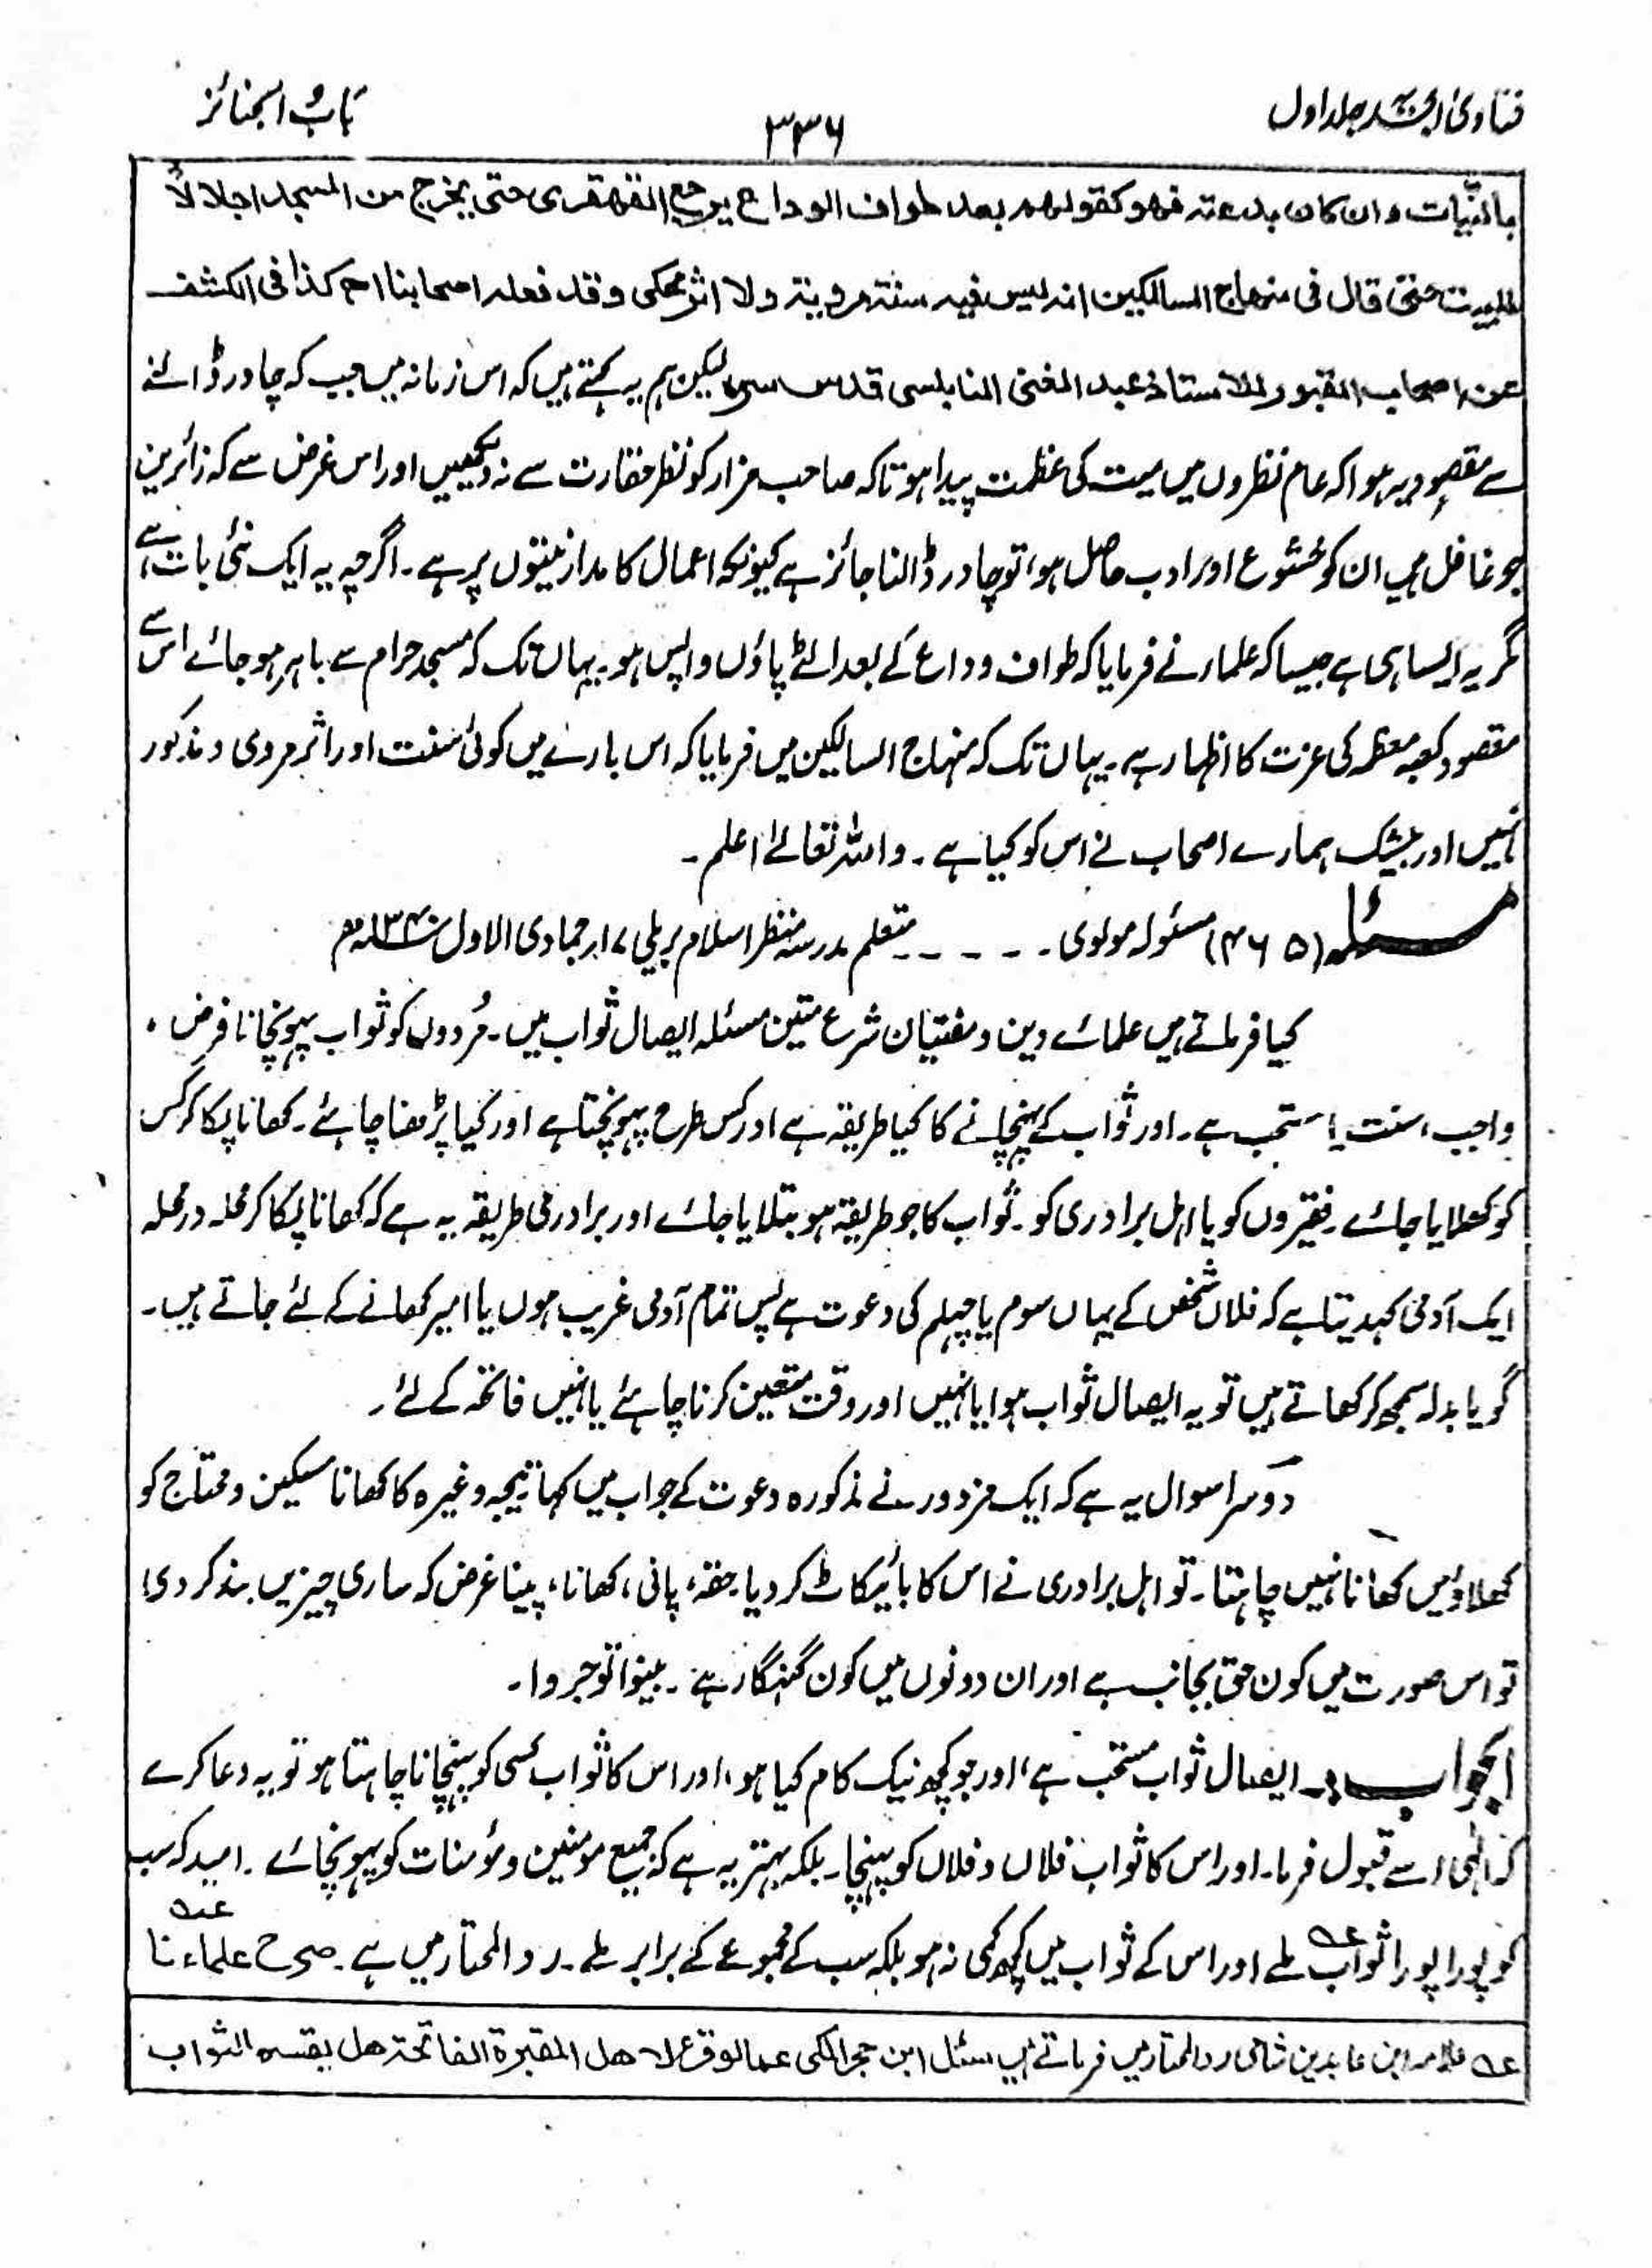 فتاویٰ امجدیہ جلد اول
۳۳۶
باب الجنائز
بالنیات وان کان بدعتہ فہو کقولہم بعد طواف الوداع یرجع القہقری حتی یخرج من المسجد اجلالاً
للبیت حتی قال فی منہاج السالکین انہ لیس فیہ سنۃ مرویۃ ولا اثر محکی وقد فعلہ اصحابنا اھ کذا فی الکشف
عن اصحاب القبور للاستاذ عبد الغنی النابلسی قدس سرہ لیکن ہم یہ کہتے ہیں کہ اس زمانہ میں جب کہ چادر ڈالنے
سے مقصود یہ ہوا کہ عام نظروں میں میت کی عظمت پیدا ہو تاکہ صاحب مزار کو نظر حقارت سے نہ دیکھیں اور اس غرض سے کہ زائرین
جو غافل ہیں ان کو خشوع اور ادب حاصل ہو، تو چادر ڈالنا جائز ہے کیونکہ اعمال کا مدار نیتوں پر ہے۔ اگرچہ یہ ایک نئی بات ہے
مگر یہ ایسا ہی ہے جیسا کہ علماء نے فرمایا کہ طواف وداع کے بعد الٹے پاؤں واپس ہو۔ یہاں تک کہ مسجد حرام سے باہر ہو جائے اس سے
مقصود کعبہ معظمہ کی عزت کا اظہار ہے۔ یہاں تک کہ منہاج السالکین میں فرمایا کہ اس بارے میں کوئی سنت اور اثر مروی و مذکور
نہیں اور بیشک ہمارے اصحاب نے اس کو کیا ہے۔ واللہ تعالےٰ اعلم۔
مسئلہ (۴۶۵) مسئولہ مولوی ۔ ۔ ۔ ۔ ۔ متعلم مدرسہ منظر اسلام بریلی ۱۷ جمادی الاول ۱۳۴۰ھ
کیا فرماتے ہیں علمائے دین و مفتیان شرع متین مسئلہ ایصال ثواب میں۔ مُردوں کو ثواب پہونچانا فرض ،
واجب، سنت یا مستحب ہے۔ اور ثواب کے پہنچانے کا کیا طریقہ ہے اور کس طرح پہونچتا ہے اور کیا پڑھنا چاہئے۔ کھانا پکا کر کس
کو کھلایا جائے۔ فقیروں کو یا اہل برادری کو۔ ثواب کا جو طریقہ ہو بتلایا جائے اور برادری طریقہ یہ ہے کہ کھانا پکا کر محلہ در محلہ
ایک آدمی کہدیتا ہے کہ فلاں شخص کے یہاں سوم یا چہلم کی دعوت ہے پس تمام آدمی غریب ہوں یا امیر کھانے کے لئے جاتے ہیں۔
گویا بدلہ سمجھ کر کھاتے ہیں تو یہ ایصال ثواب ہوا یا نہیں اور وقت متعین کرنا چاہئے یا نہیں فاتحہ کے لئے۔
دوسرا سوال یہ ہے کہ ایک مزدور نے مذکورہ دعوت کے جواب میں کہا تیجہ وغیرہ کا کھانا مسکین و محتاج کو
کھلاؤ میں کھانا نہیں چاہتا۔ تو اہل برادری نے اس کا بائیکاٹ کر دیا۔ حقہ، پانی، کھانا، پینا غرض کہ ساری چیزیں بند کر دی۔
تو اس صورت میں کون حق بجانب ہے اور ان دونوں میں کون گنہگار ہے۔ بینوا توجروا۔
الجواب :۔ ایصال ثواب مستحب ہے، اور جو کچھ نیک کام کیا ہو، اور اس کا ثواب کسی کو پہنچانا چاہتا ہو تو یہ دعا کرے
کہ الٰہی اسے قبول فرما۔ اور اس کا ثواب فلاں و فلاں کو پہنچا۔ بلکہ بہتر یہ ہے کہ جمیع مومنین و مؤمنات کو پہونچائے۔ امید کہ سب
کو پورا پورا ثواب عہ ملے اور اس کے ثواب میں کچھ کمی نہ ہو بلکہ سب کے مجموعے کے برابر ملے۔ رد المحتار میں ہے۔ صرح علماءنا عہ
عہ علامہ ابن عابدین شامی رد المحتار میں فرماتے ہیں سئل ابن حجر المکی عما لو قرء لاھل المقبرۃ الفاتحۃ ھل یقسم الثواب